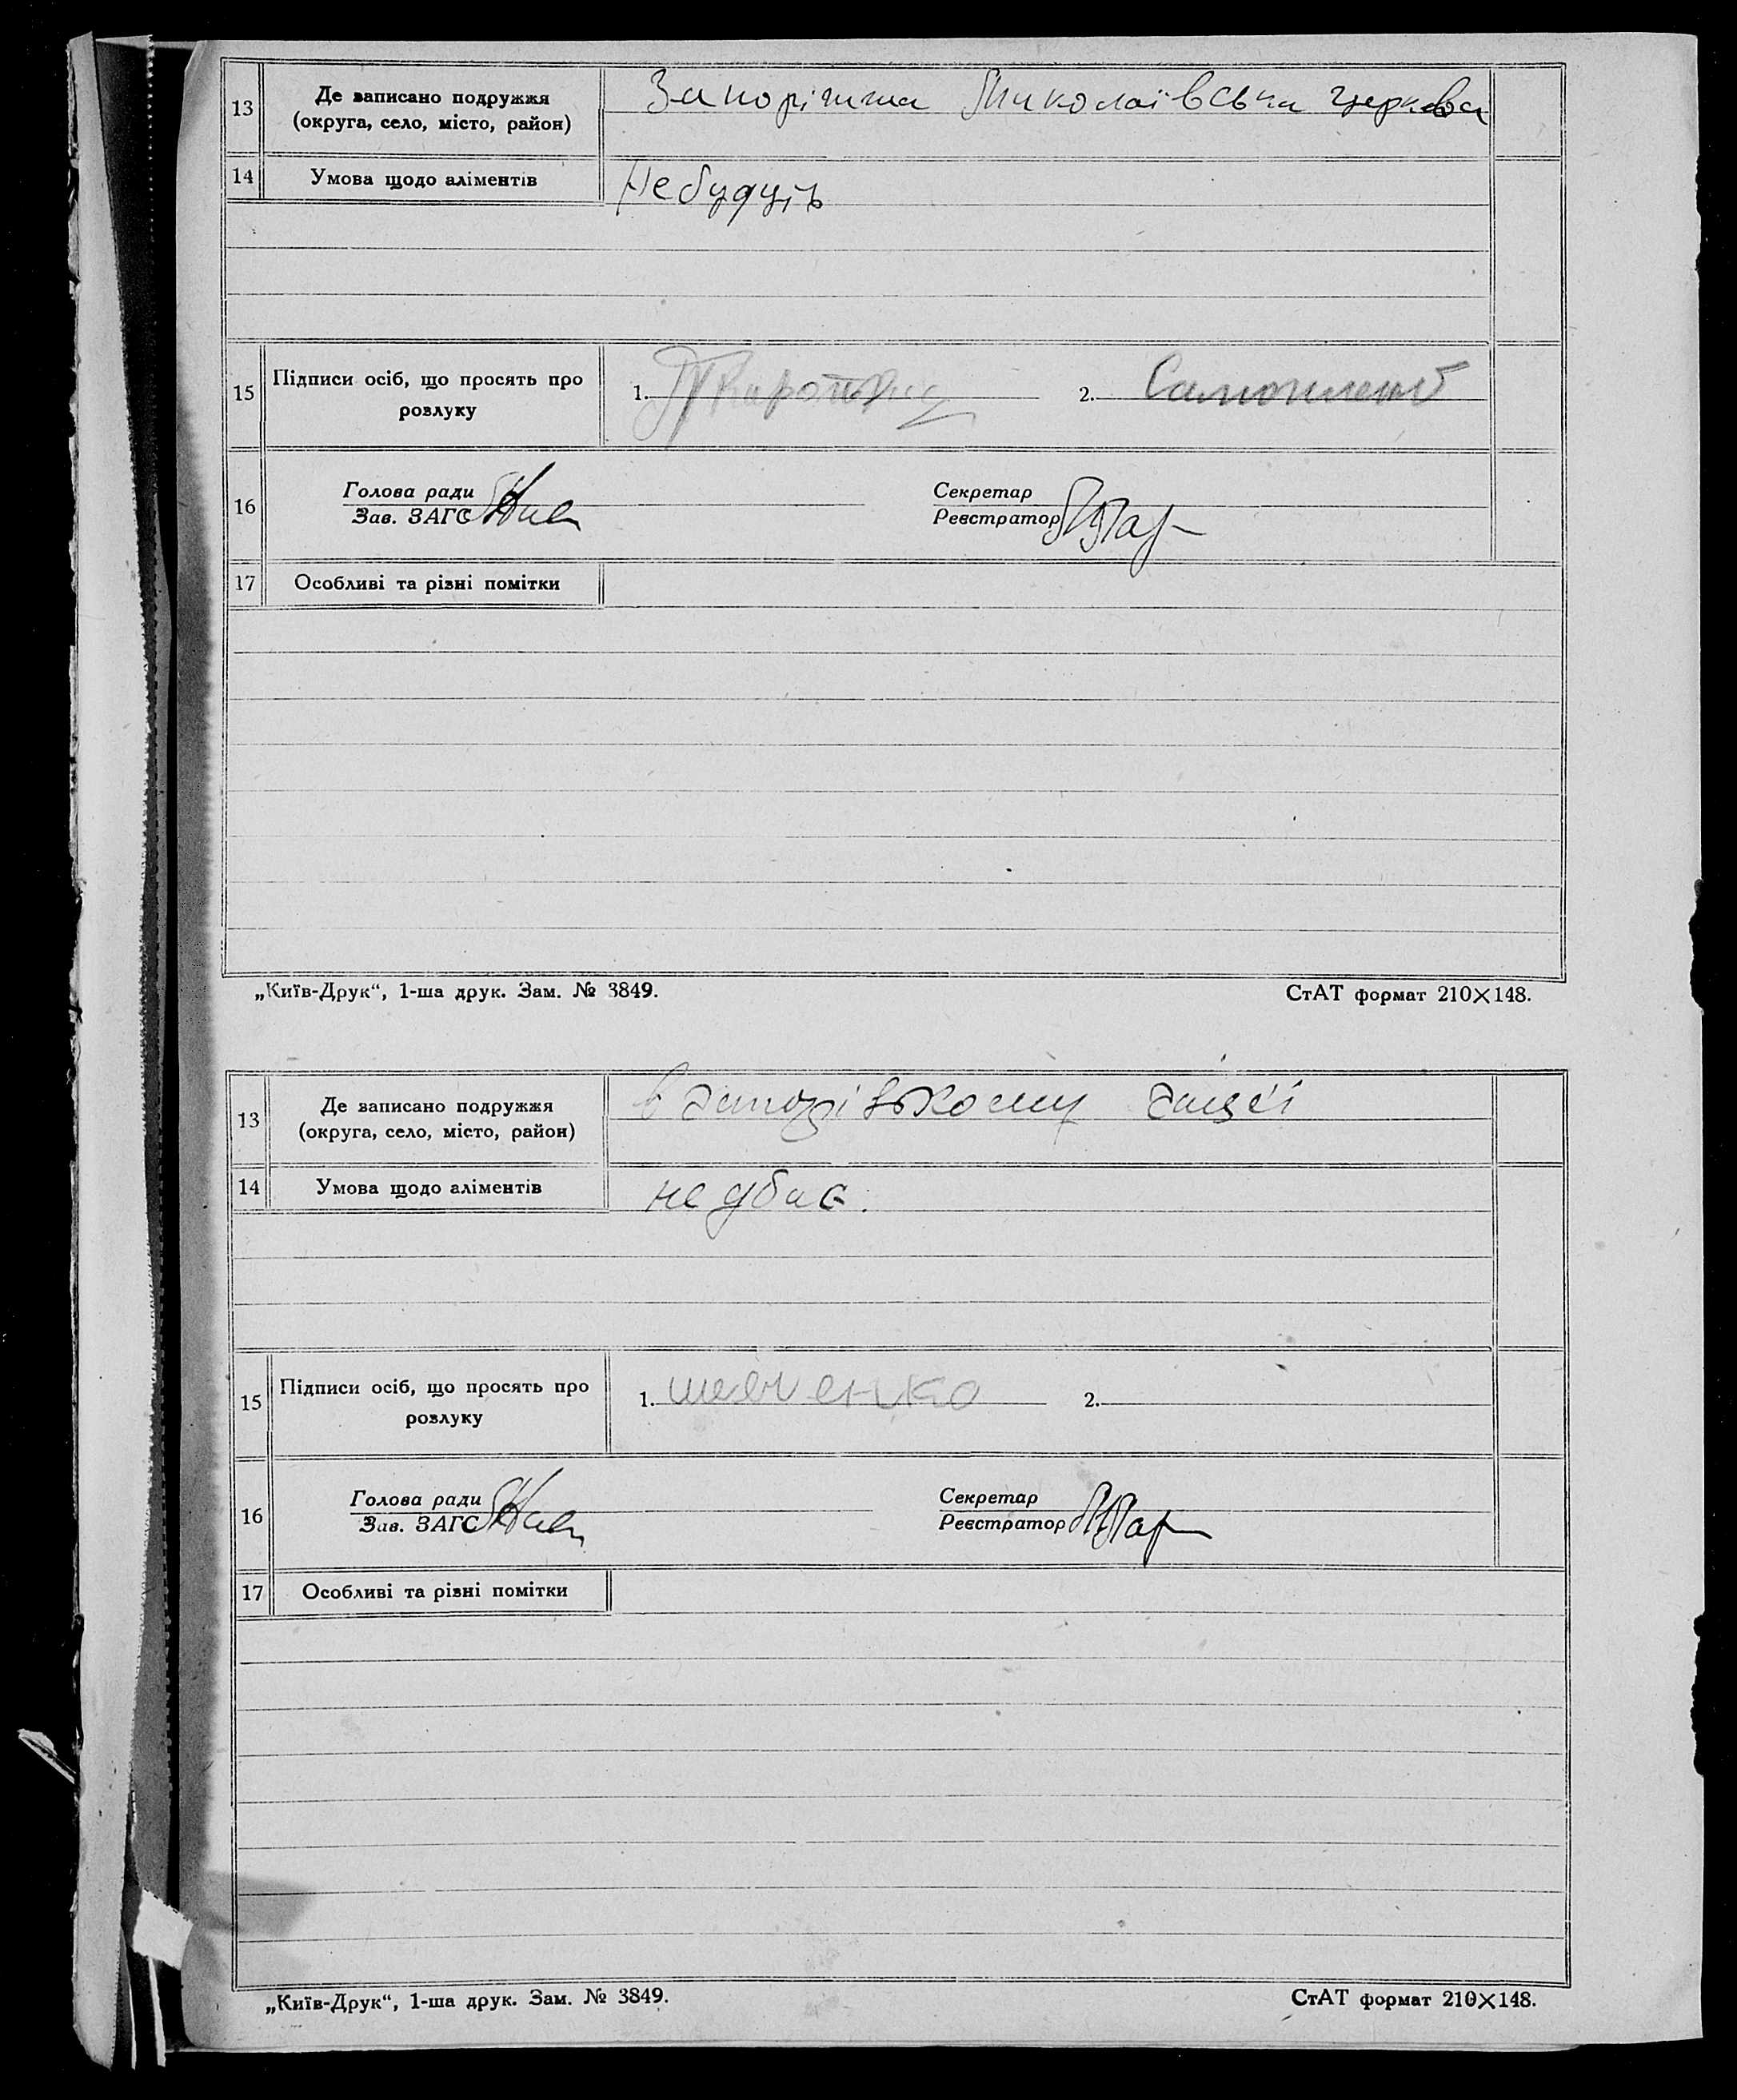 13 Де записано подружжя (округа, село, місто, район) Миколаївська церква
14 Умова щодо аліментів Не будуть
15 Підписи осіб, що просять про розлуку 1. 2.
16 Голова ради Зав. ЗАГС Секретар Реєстратор
17 Особливі та різні помітки
„Київ-Друк“, 1-ша друк. Зам. № 3849. СтАТ формат 210×148.
13 Де записано подружжя (округа, село, місто, район) в
14 Умова щодо аліментів не дбає.
15 Підписи осіб, що просять про розлуку 1. 2.
16 Голова ради Зав. ЗАГС Секретар Реєстратор
17 Особливі та різні помітки
„Київ-Друк“, 1-ша друк. Зам. № 3849. СтАТ формат 210×148.